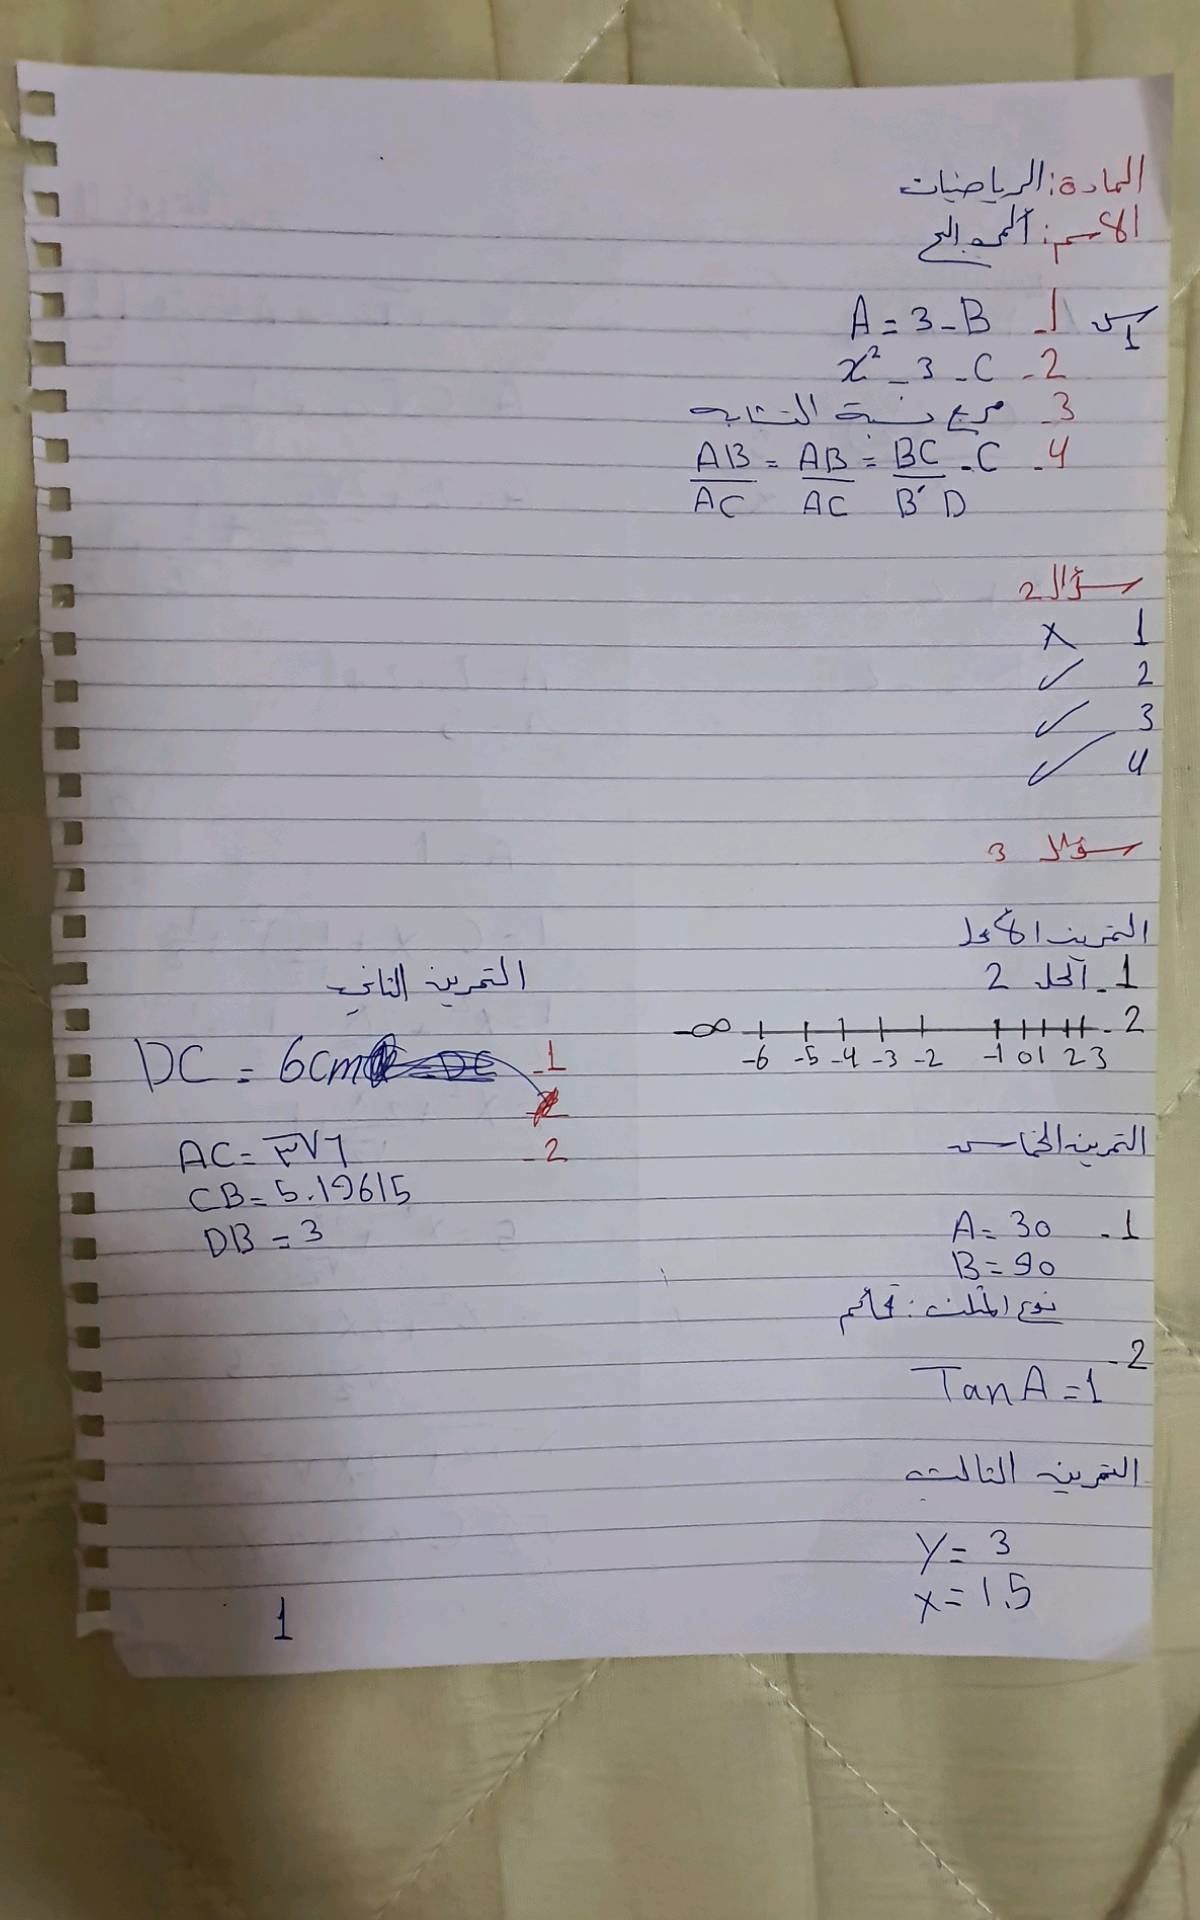 المادة: الرياضيات
الاسم:
س1 1- A = 3 - B
2- x² - 3 - C
3- مربع نسبة التشابه
4- AB/AC = AB/AC = BC/B'D - C
سؤال 2
1 ×
2 ✓
3 ✓
4 ✓
سؤال 3
التمرين الأول
1- الحل 2
2- -∞ -6 -5 -4 -3 -2 -1 0 1 2 3
التمرين الخامس
1- A = 30
B = 90
نوع المثلث: قائم
2-
Tan A = 1
التمرين الثالث
y = 3
x = 1.5
التمرين الثاني
1- DC = 6cm
2- AC =
CB = 5.19615
DB = 3
1